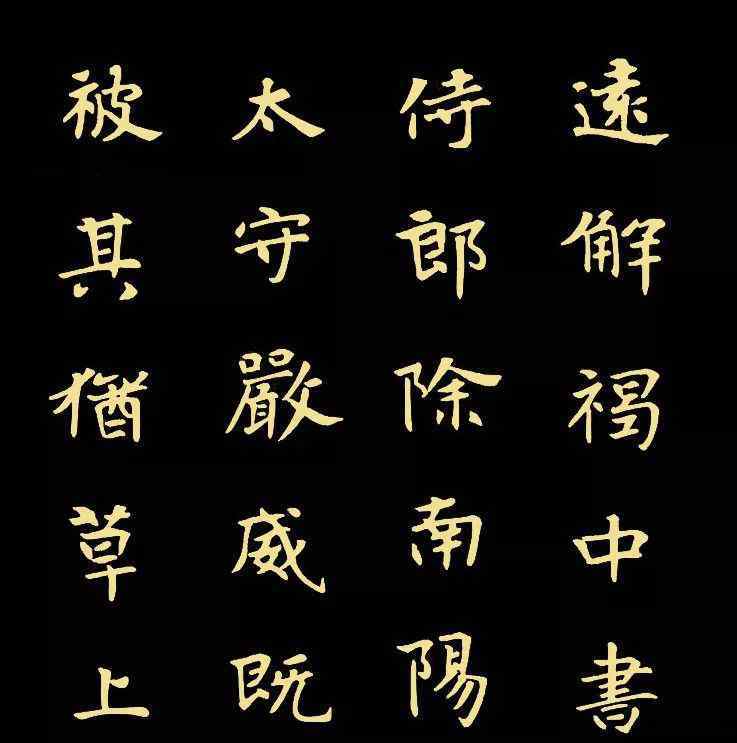 遠解褐中書
侍郎除南陽
太守嚴威既
被其猶草上